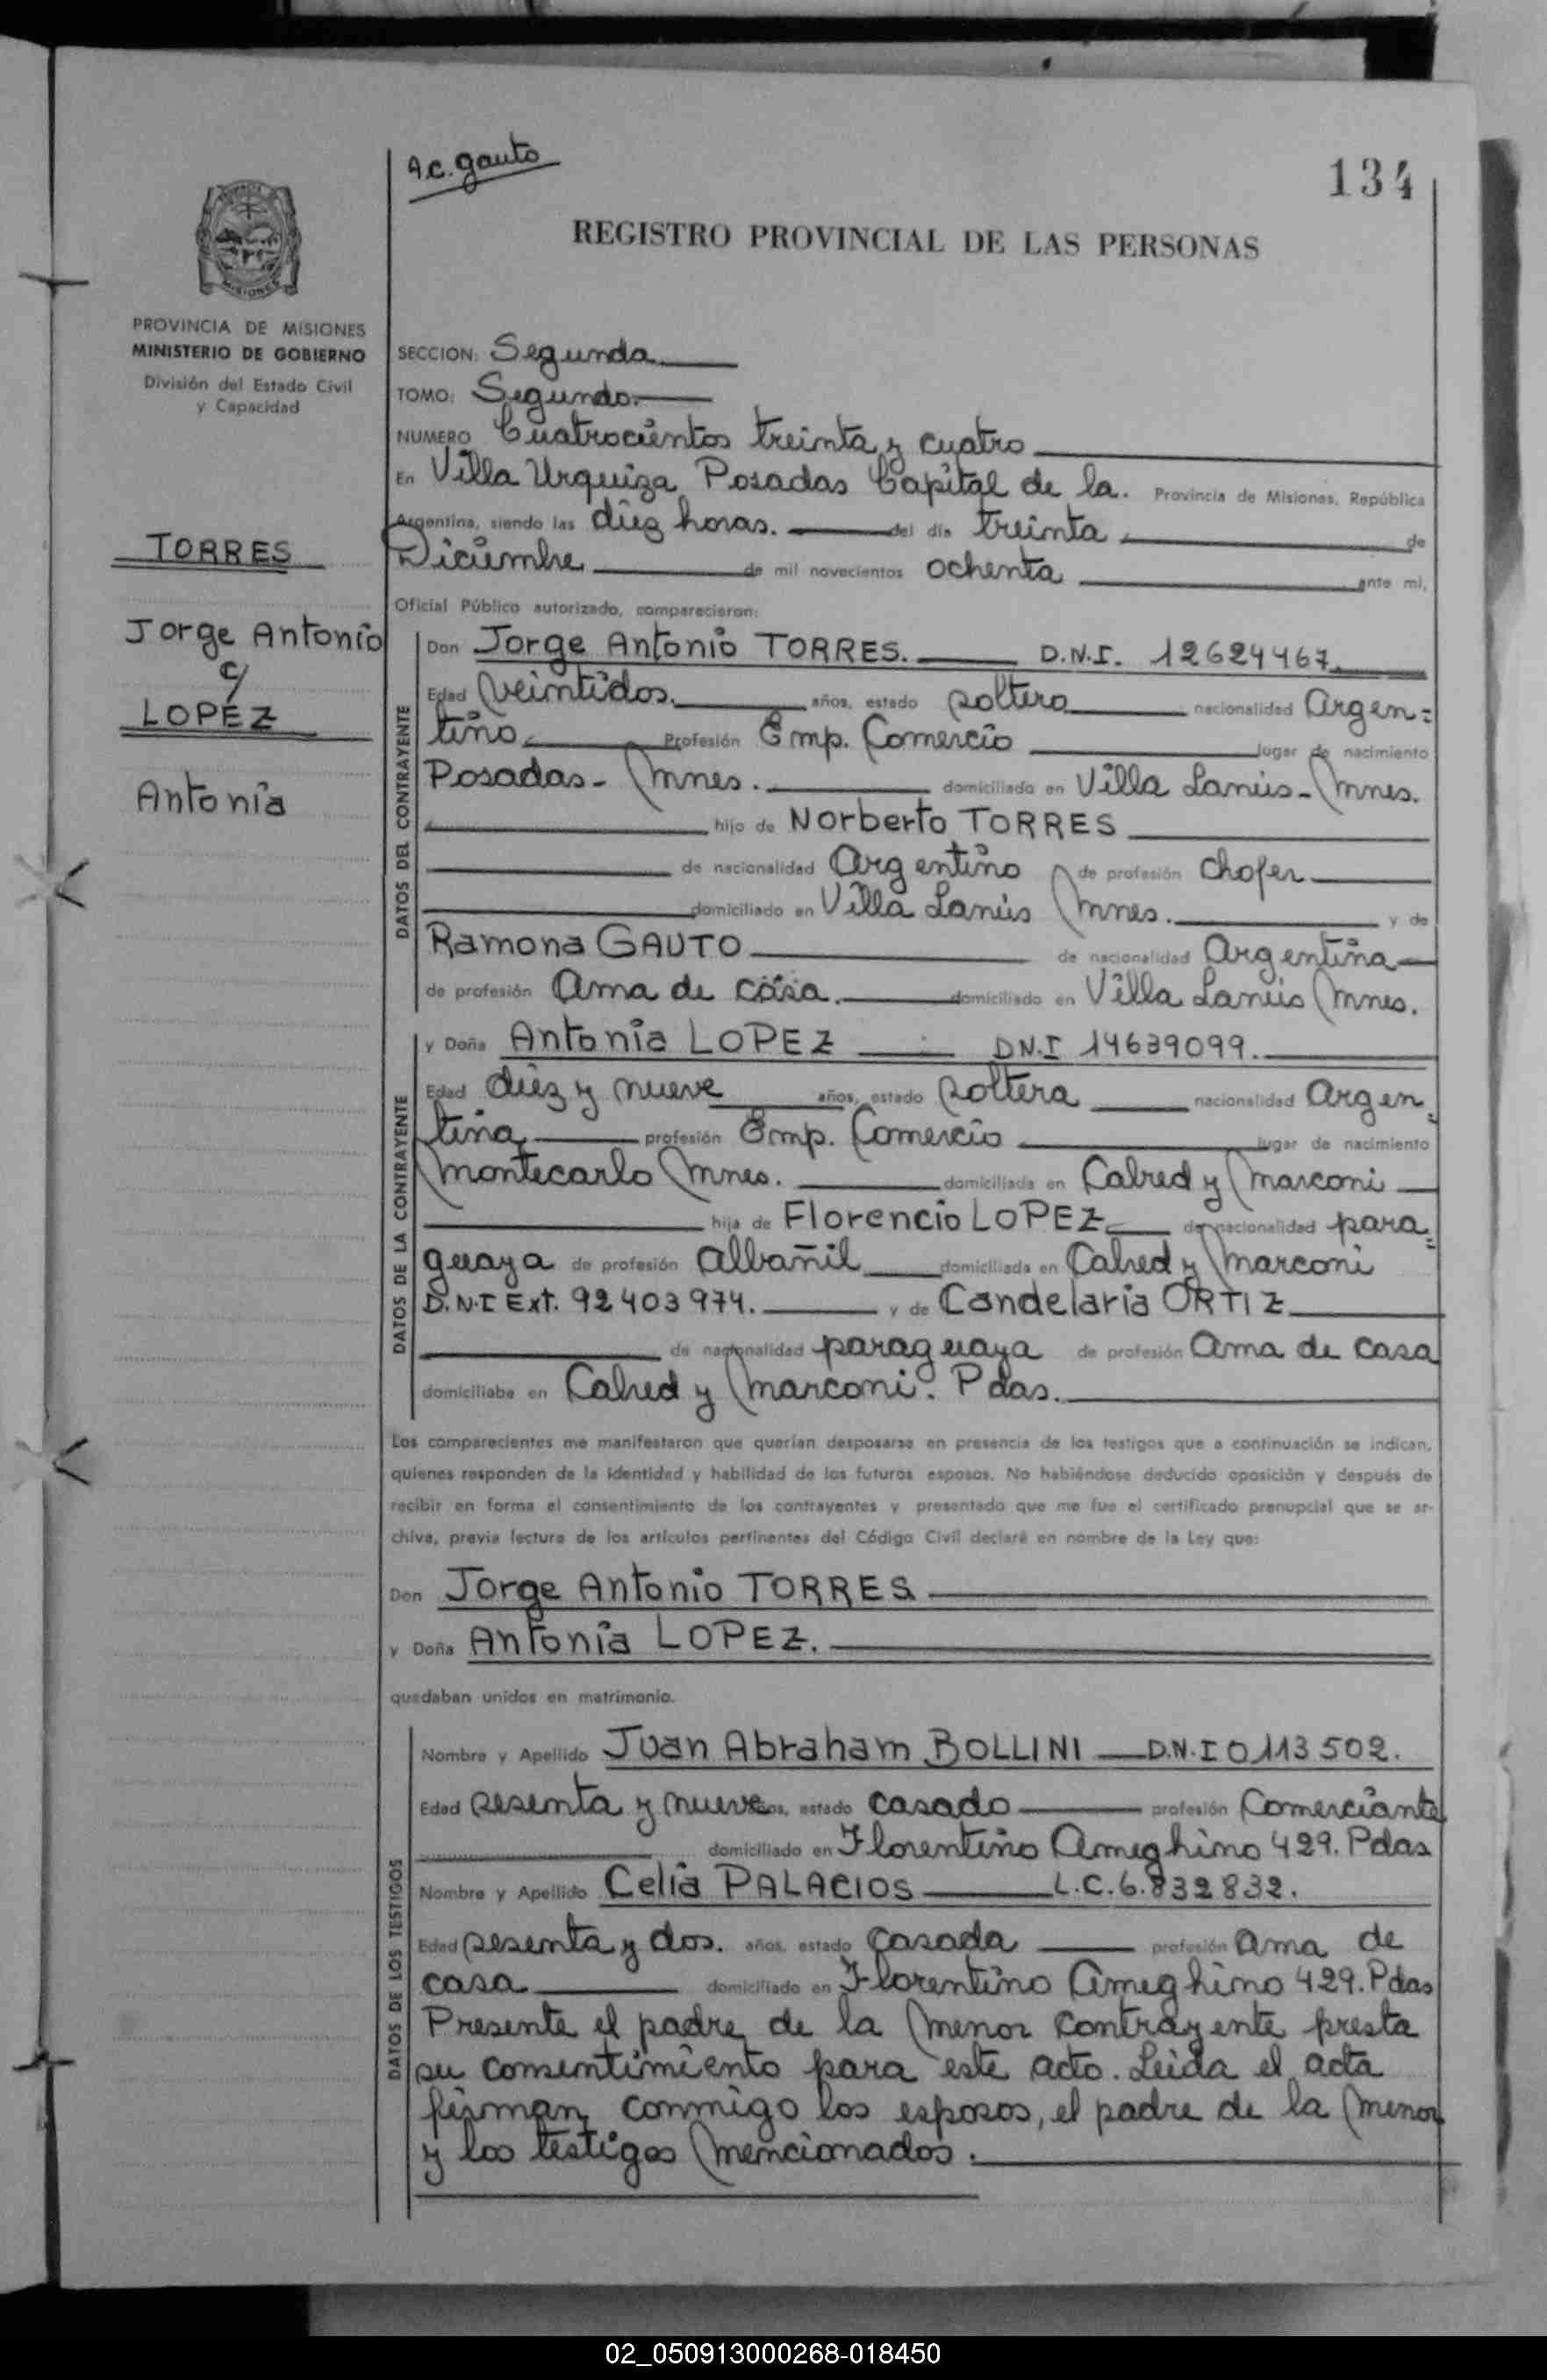 A.C. Gauto
134
REGISTRO PROVINCIAL DE LAS PERSONAS
MISIONES
PROVINCIA DE MISIONES
MINISTERIO DE GOBIERNO
División del Estado Civil
y Capacidad
TORRES
Jorge Antonio
c/
LOPEZ
Antonia
SECCION: Segunda
TOMO: Segundo.
NUMERO Cuatrocientos treinta y cuatro
En Villa Urquiza Posadas Capital de la. Provincia de Misiones, República
Argentina, siendo las diez horas. del día treinta de
Diciembre de mil novecientos ochenta ante mi,
Oficial Público autorizado, comparecieron:
DATOS DEL CONTRAYENTE
Don Jorge Antonio TORRES. D.N.I. 12624467.
Edad veintidos. años, estado soltero nacionalidad Argen=
tino. Profesión Emp. Comercio lugar de nacimiento
Posadas - Mnes. domiciliado en Villa Lanús - Mnes.
hijo de Norberto TORRES
de nacionalidad Argentino de profesión chofer
domiciliado en Villa Lanús Mnes. y de
Ramona GAUTO de nacionalidad Argentina
de profesión Ama de casa. domiciliado en Villa Lanús Mnes.
DATOS DE LA CONTRAYENTE
y Doña Antonia LOPEZ DN.I 14639099.
Edad diez y nueve años, estado soltera nacionalidad Argen=
tina, profesión Emp. Comercio lugar de nacimiento
Montecarlo Mnes. domiciliada en Calred y Marconi
hija de Florencio LOPEZ de nacionalidad para=
guaya de profesión Albañil domiciliada en Calred y Marconi
D.N.I Ext. 92403974. y de Candelaria ORTIZ
de nacionalidad paraguaya de profesión Ama de casa
domiciliabe en Calred y Marconi. Pdas.
Los comparecientes me manifestaron que querían desposarse en presencia de los testigos que a continuación se indican,
quienes responden de la identidad y habilidad de los futuros esposos. No habiéndose deducido oposición y después de
recibir en forma el consentimiento de los contrayentes y presentado que me fue el certificado prenupcial que se ar-
chiva, previa lectura de los artículos pertinentes del Código Civil declaré en nombre de la Ley que:
Don Jorge Antonio TORRES
y Doña Antonia LOPEZ.
quedaban unidos en matrimonio.
DATOS DE LOS TESTIGOS
Nombre y Apellido Juan Abraham BOLLINI D.N.I 0113502.
Edad sesenta y nueve años, estado casado profesión Comerciante
domiciliado en Florentino Ameghino 429. Pdas
Nombre y Apellido Celia PALACIOS L.C.6.832832.
Edad sesenta y dos. años, estado casada profesión Ama de
casa domiciliado en Florentino Ameghino 429. Pdas
Presente el padre de la menor contrayente presta
su consentimiento para este acto. Leida el acta
firman conmigo los esposos, el padre de la menor
y los testigos mencionados.
02_050913000268-018450